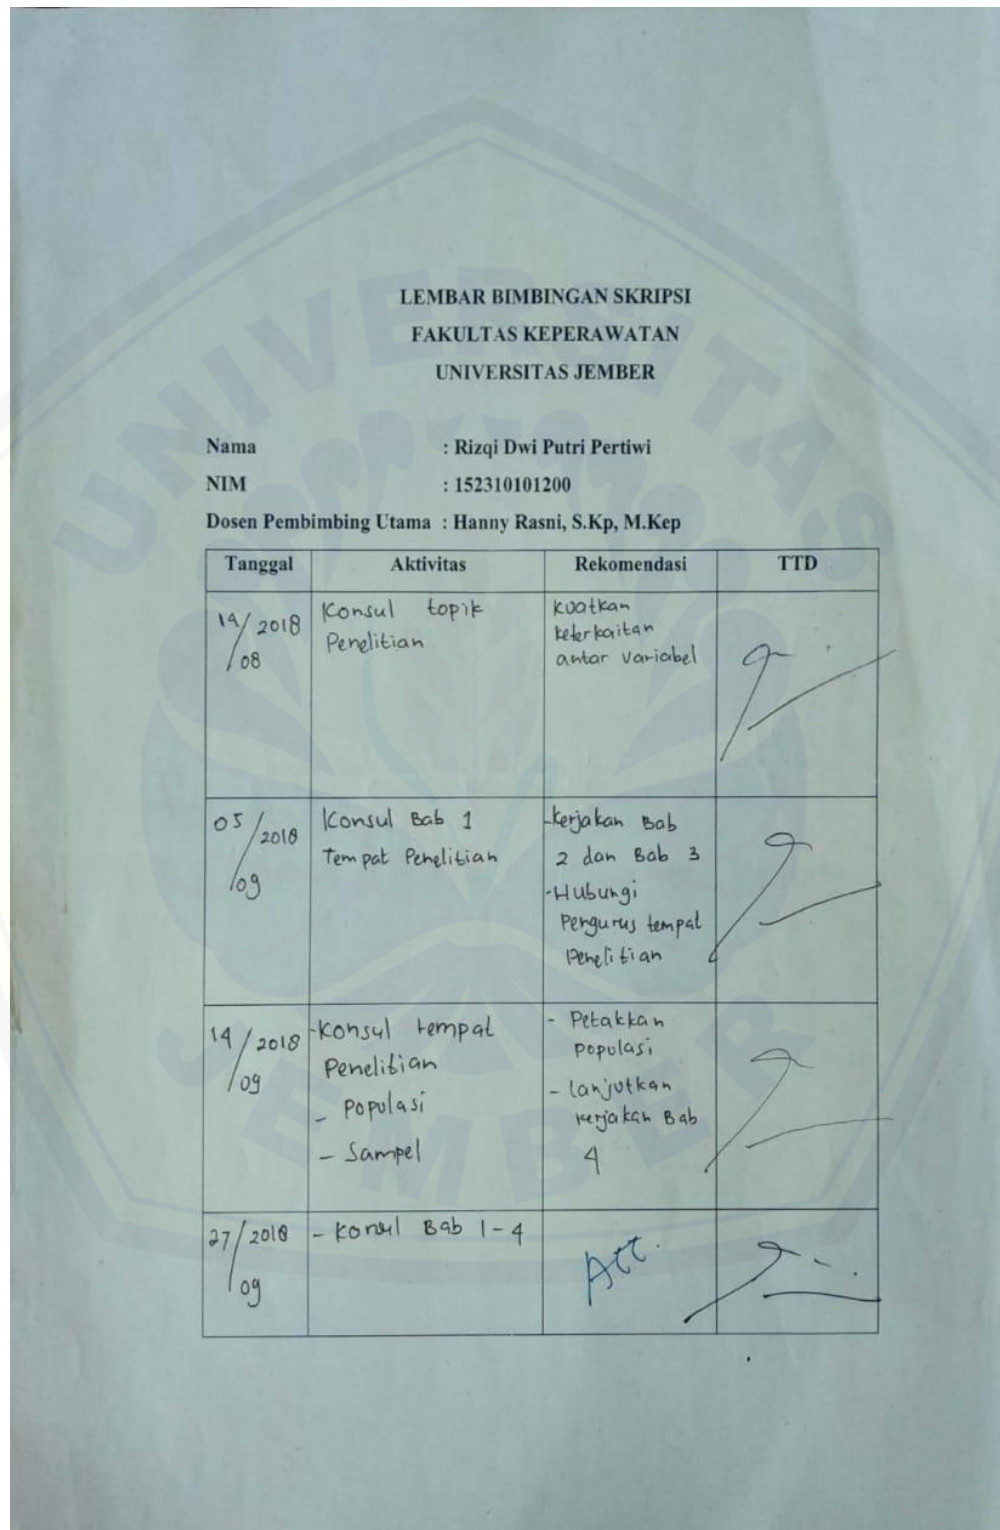 LEMBAR BIMBINGAN SKRIPSI
FAKULTAS KEPERAWATAN
UNIVERSITAS JEMBER
Nama : Rizqi Dwi Putri Pertiwi
NIM : 152310101200
Dosen Pembimbing Utama : Hanny Rasni, S.Kp, M.Kep
Tanggal Aktivitas Rekomendasi TTD
/ 2018
/ 08
Konsul topik
Penelitian
kuatkan
keterkaitan
antar variabel
05 / 2018
/ 09
Konsul Bab 1
Tempat Penelitian
- kerjakan Bab
2 dan Bab 3
- Hubungi
Pengurus tempat
Penelitian
14 / 2018
/ 09
- Konsul tempat
Penelitian
- Populasi
- Sampel
- Petakkan
populasi
- lanjutkan
kerjakan Bab
4
27 / 2018
/ 09
- Konsul Bab 1 - 4
Acc.
UNIVERSITAS
JEMBER